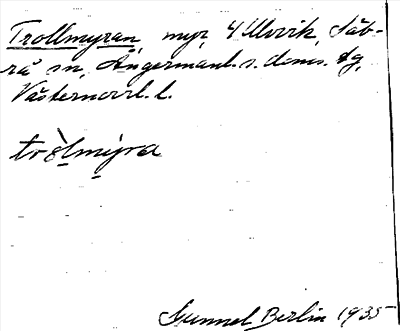 Trollmyran, myr, 4 Ullvik, Säb-
rå sn, Ångermanl. s. doms. tg,
Västernorrl. l.
tròlmýra
Gunnel Berlin 1935